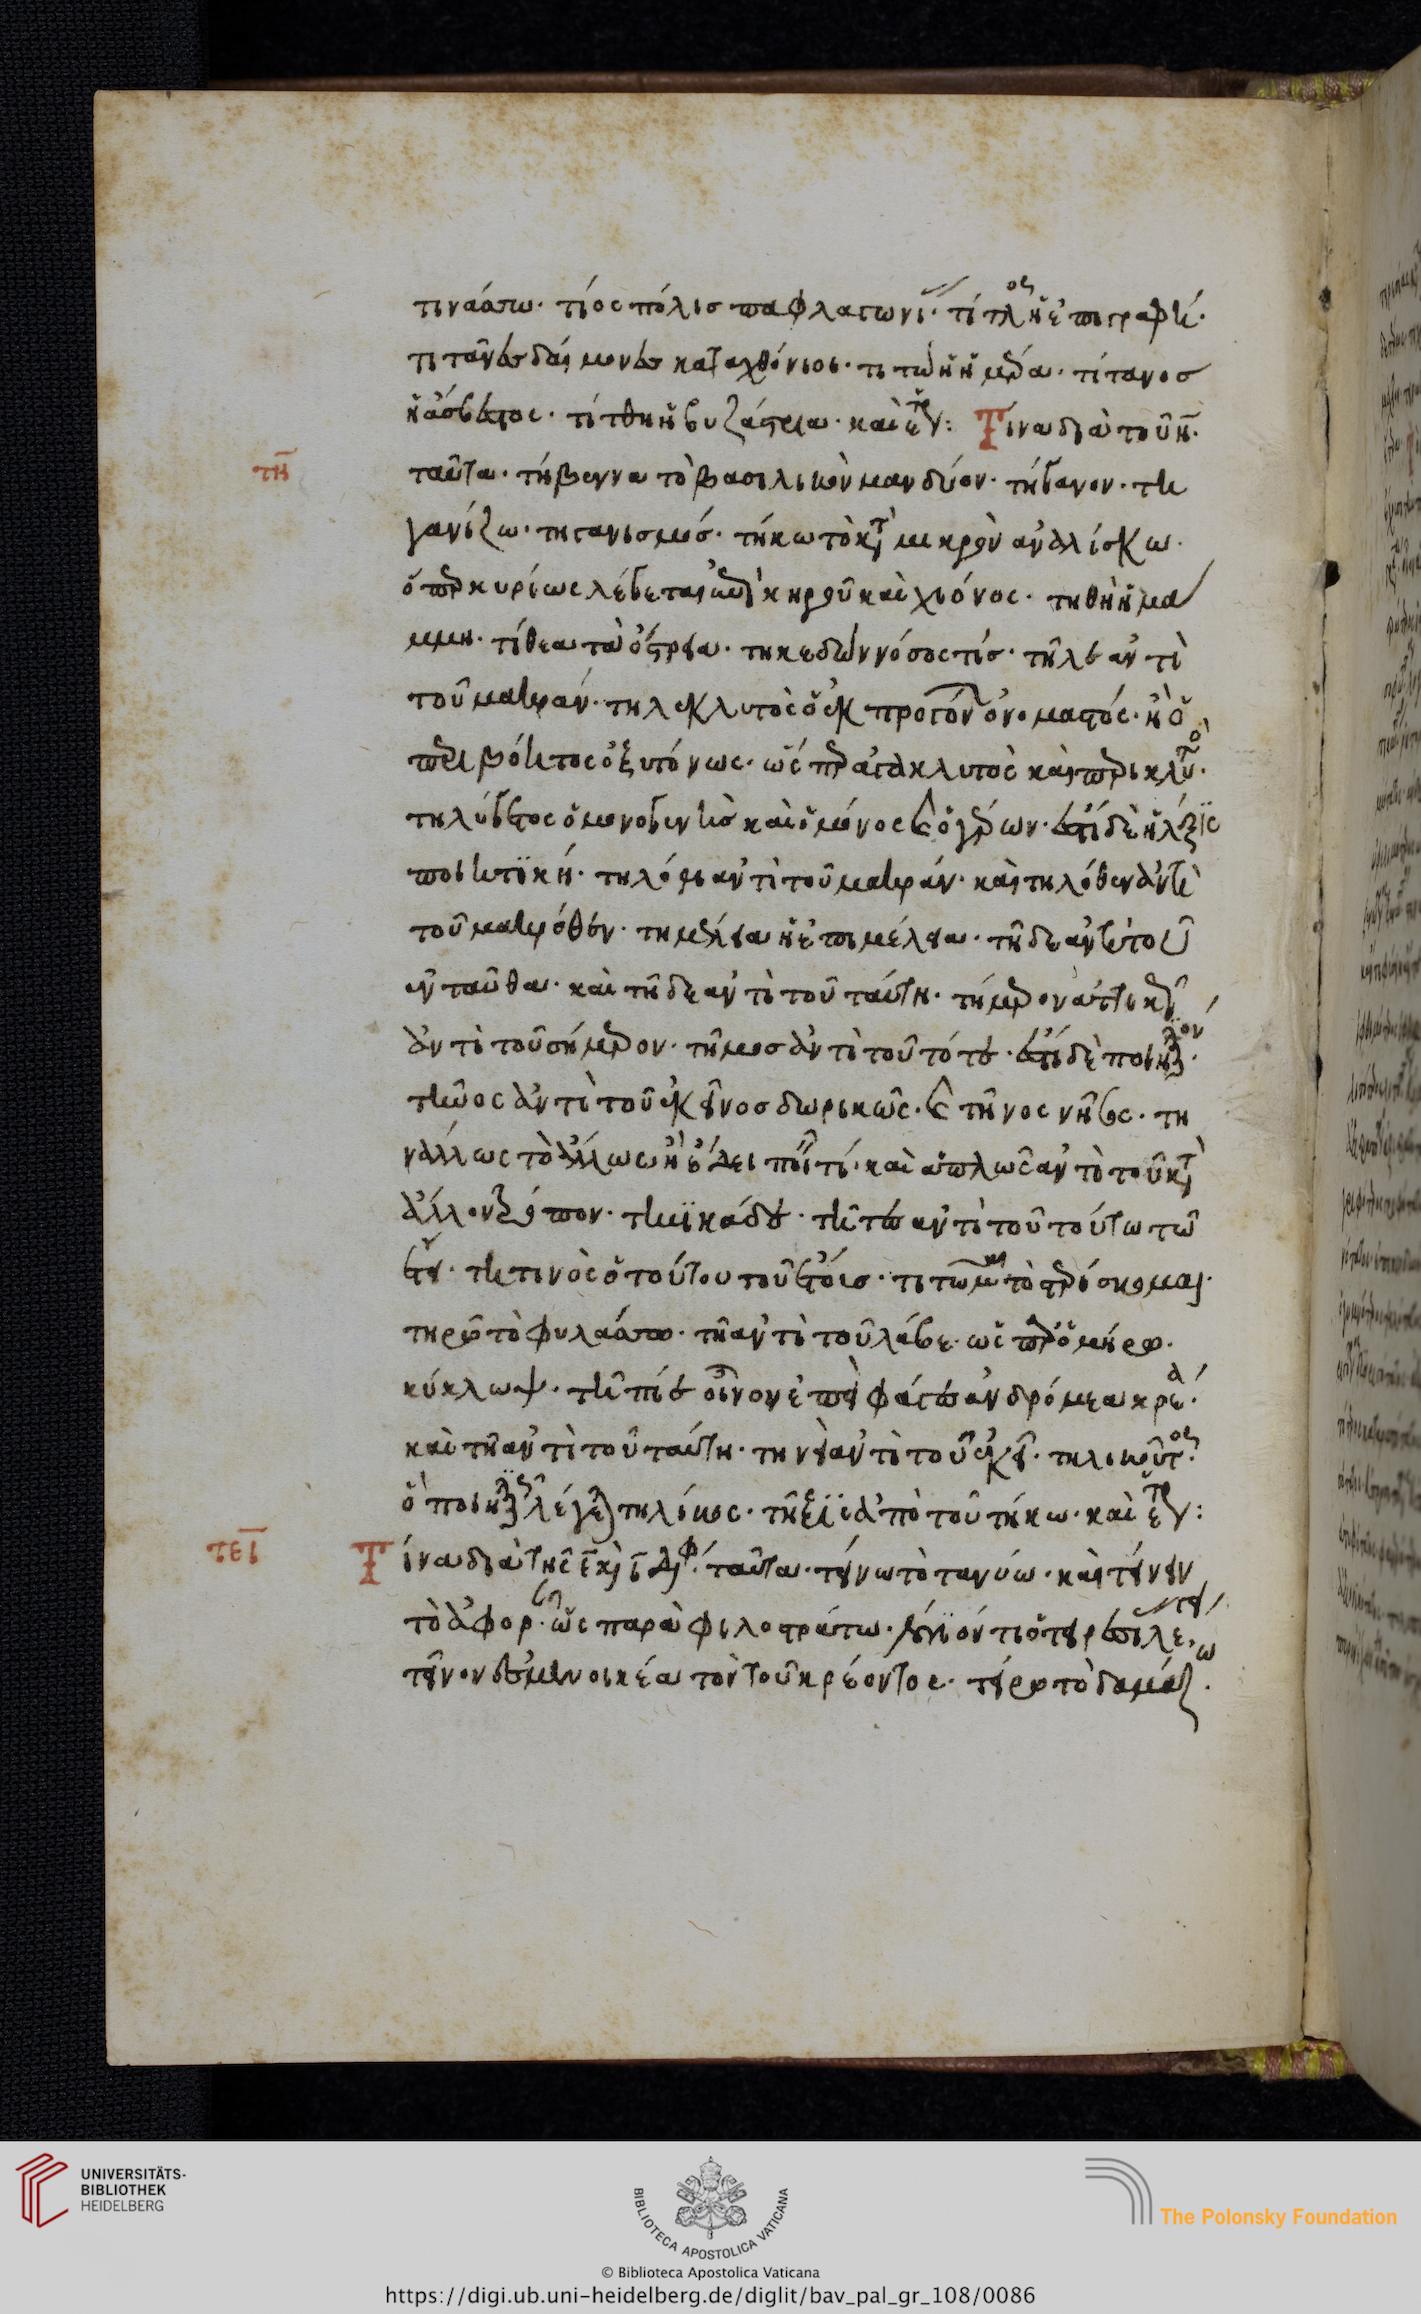 τινάσσω. τίος πόλισ παφλαγωνι. τίτλος ἡ ἐπιγραφή.
τιτᾶνες δαίμονες καταχθόνιοι. τιτὼ ἡ ἡμέρα. τίτανος
ἡ ἄσβεστος. τίτθη ἡ βυζάστρια. καὶ ἕτερα: Τινα διὰ τοῦ η
τη
ταῦτα. τήβεννα τὸ βασιλικὸν μανδύον. τήγανον. τη
γανίζω. τηγανισμόσ. τήκω τὸ κατὰ μικρὸν ἀναλίσκω.
ὅπερ κυρίως λέγεται ἐπὶ κηροῦ καὶ χιόνος. τηθὴ ἡ μά
μμη. τήθεα τὰ ὄστρεα. τηκεδὼν νόσος τίσ. τῆλε ἀντὶ
τοῦ μακράν. τηλεκλυτὸς ὁ ἐκ προγόνων ὀνομαστός. ἢ ὁ
περιβόητος ὀξυτόνως. ὡς παρ' ἀγακλυτὸς καὶ περικλυτός.
τηλύγετος ὁ μονογενὴσ καὶ ὁ μόνος καὶ ὀψέ. ἔστι δὲ ἡ λέξις
ποιητϊκή. τηλόσε ἀντὶ τοῦ μακράν. καὶ τηλόθεν ἀντὶ
τοῦ μακρόθεν. τημέλεια ἡ ἐπιμέλεια. τῆδε ἀντὶ τοῦ
ἐνταῦθα. καὶ τῆδε ἀντὶ τοῦ ταύτη. τήμερον ἀττικὸν
ἀντὶ τοῦ σήμερον. τῆμος ἀντὶ τοῦ τότε. ἔστι δὲ ποιητικόν.
τῆνος ἀντὶ τοῦ ἐκεῖνοσ δωρικῶς. καὶ τῆνος νῆσος. τη
νάλλως τὸ ἄλλως καὶ ἁπλῶς ἀντὶ τοῦ κατὰ
ἄλλον τρόπον. τηϊκάδε. τῆτῳ ἀντὶ τοῦ τούτω τῶ
τηρῶ τὸ φυλάσσω. τῆ ἀντὶ τοῦ λάβε. ὡς παρ' ὁμήρω.
κύκλωψ. τῆ πίε οἶνον ἐπεὶ φάγες ἀνδρόμεα κρέα.
καὶ τῆ ἀντὶ τοῦ ταύτη. τηνεὶ ἀντὶ τοῦ ἐκεῖ. τηλικοῦτος.
ὃ ποιητικῶς λέγεται τηλίκος. τῆξις ἀπὸ τοῦ τήκω. καὶ ἕτερα:
τει
Τίνα διὰ τῆς ει διφθ. ταῦτα. τείνω τὸ τανύω. καὶ τείνειν
τὸ ἀφορ. ὡς παρὰ φιλοστράτω.
τεῖνον δὲ μενοικέα τὸν τοῦ κρέοντος. τείρω τὸ δαμάζω.
UNIVERSITÄTS-
BIBLIOTHEK
HEIDELBERG
BIBLIOTECA APOSTOLICA VATICANA
The Polonsky Foundation
© Biblioteca Apostolica Vaticana
https://digi.ub.uni-heidelberg.de/diglit/bav_pal_gr_108/0086